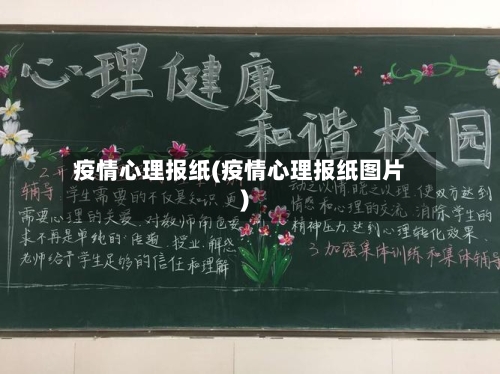 心理健康
和谐校园
疫情心理报纸(疫情心理报纸图片
)
2.开
辅导 学生需要的不仅是知识,更
需要心理的关爱,对教师角色要
求不再是单纯的“传道、授业、解惑
老师给予学生足够的信任和理解
动之以情,晓之以理,使双方达到
情感和心理的交流,消除学生的
精神压力,达到心理转化效果.
3.加强集体训练和集体辅导